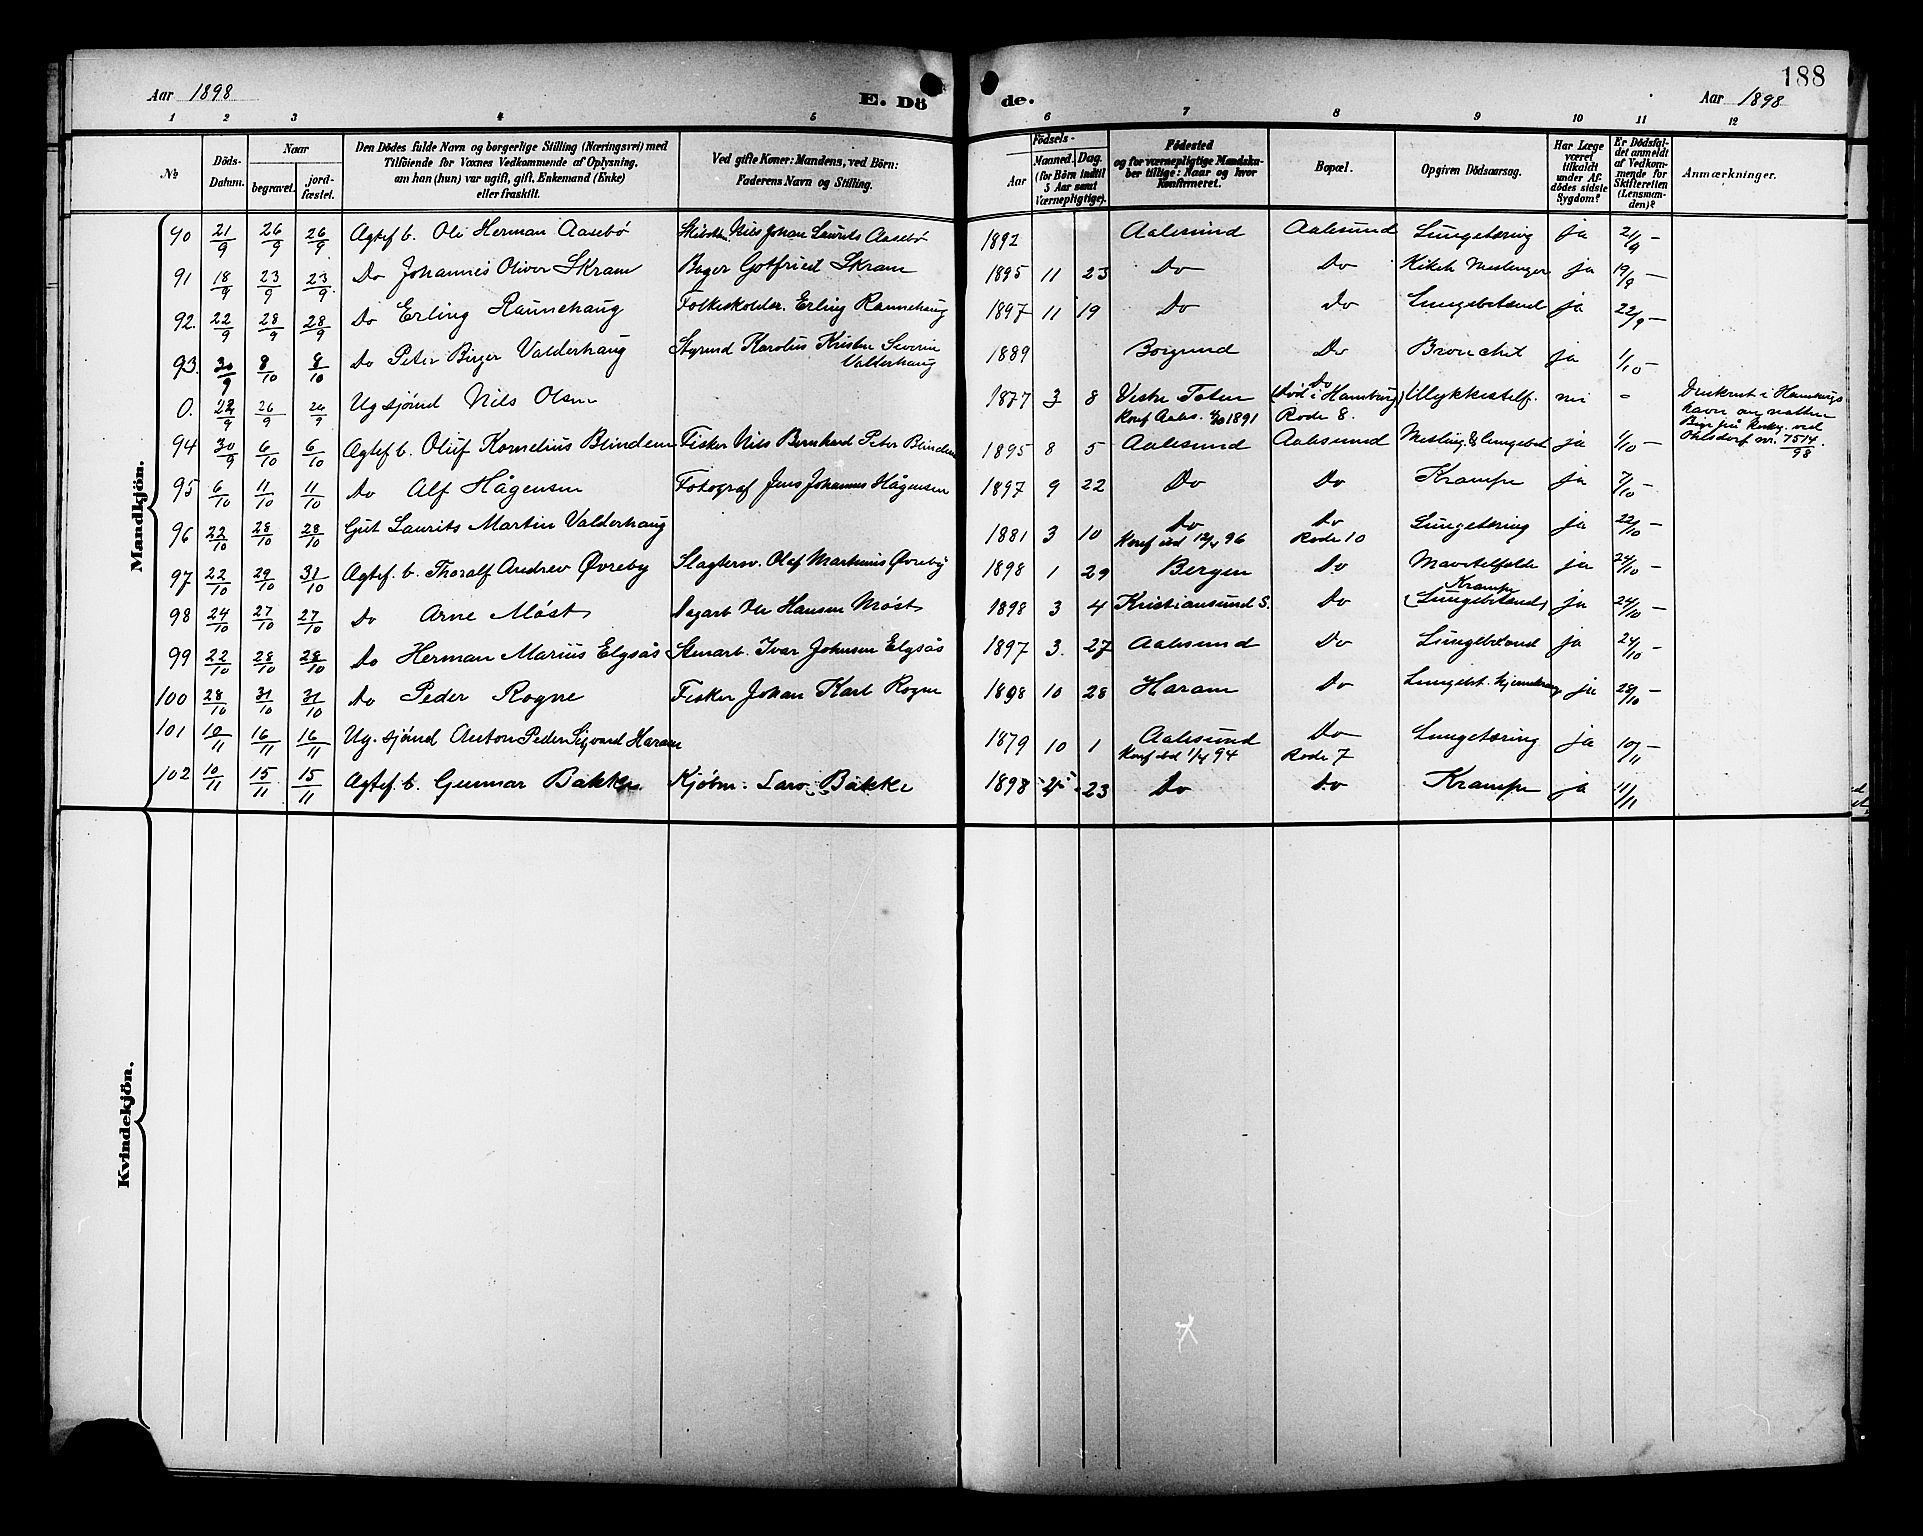 188
Aar 1898 E. Dö de. Aar 1898
1 2 3 4 5 6 7 8 9 10 11 12
№
Döds-Datum.
Naar
begravet.
jordfæstet.
Den Dödes fulde Navn og borgerlige Stilling (Næringsvei) med
Tilföiende for Voxnes Vedkommende af Oplysning,
om han (hun) var ugift, gift, Enkemand (Enke)
eller fraskilt.
Ved gifte Koner: Mandens, ved Börn:
Faderens Navn og Stilling.
Födsels-
Aar
Maaned. Dag.
(for Börn indtil
5 Aar samt
Værnepligtige).
Födested
og for værnepligtige Mandskaber
tillige: Naar og hvor
Konfirmeret.
Bopæl.
Opgiven Dödsaarsag.
Har Læge
været
tilkaldt
under Afdödes
sidste
Sygdom?
Er Dödsfaldet
anmeldt
af Vedkommende
for
Skifteretten
(Lensmanden)?
Anmærkninger.
Mandkjön.
90 21/9 26/9 26/9 Agtef b. Ole Herman Aasebö Nils Johan Laurits Aasebö 1892 Aalesund Aalesund Lungetæring ja 21/9 -
91 18/9 23/9 23/9 Do Johannes Oliver Skram Bager Gotfried Skram 1895 11 23 Do Do Kikh Meslinger ja 19/9 -
92. 22/9 28/9 28/9 Do Erling Rannehaug Folkeskolelær. Erling Rannehaug 1897 11 19 Do Do Lungebetænd ja 22/9 -
93. 30/9 8/10 8/10 Do Peter Birger Valderhaug Styrmd Karolus Kristen Severin Valderhaug 1889 Borgund Do Bronchit ja 1/10 -
0. 22/9 26/9 26/9 Ug sjömd Nils Olsen 1877 3 8 Vestre Toten Konf Aales. 1891 Do (Död i Hamburg) Rode 8. Ulykkestilf. nei - Druknet i Hamburgs havn ved Ohlsdorf nr. 7514/98
94 30/9 6/10 6/10 Agtef b. Oluf Kornelius Blindem Fisker Nils Bernhard Peter Blindem 1895 8 5 Aalesund Aalesund Mesling. & Lungebet ja 1/10 -
95 6/10 11/10 11/10 Do Alf Hågensen Fotograf Jens Johannes Hågensen 1897 9 22 Do Do Krampe ja 7/10 -
96 22/10 28/10 28/10 Gut Laurits Martin Valderhaug 1881 3 10 Do Konf 12/4 96 Do Rode 10 Lungetæring ja 22/10 -
97 22/10 29/10 31/10 Agtef. b. Thoralf Andrev Øvreby Slagtersv. Olaf Martinius Øvreby 1898 1 29 Bergen Do Mavetilfælde ja 24/10 -
98 24/10 27/10 27/10 Do Arne Möst Dagarb Ole Hansen Möst 1898 3 4 Kristiansund S. Do Krampe (Lungebetænd) ja 24/10 -
99 22/10 28/10 28/10 Do Herman Marius Elgsås Stenarb. Ivar Johnsen Elgsås 1897 3. 27 Aalesund Do Lungebetænd ja 24/10 -
100 28/10 31/10 31/10 Do Peder Rogne Fisker Johan Karl Rogne 1898 10 28 Haram Do Lungebet. ja 28/10 -
101 10/11 16/11 16/11 Ug. sjömd Anton Peder Sigvard Haram 1879 10 1 Aalesund Konf 1/4 94 Do Rode 7 Lungetæring ja 10/11 -
102 10/11 15/11 15/11 Agtef b. Gunnar Bakke Kjöbm. Lars Bakke 1898 23 Do Do Krampe ja 11/11
Kvindekjön.